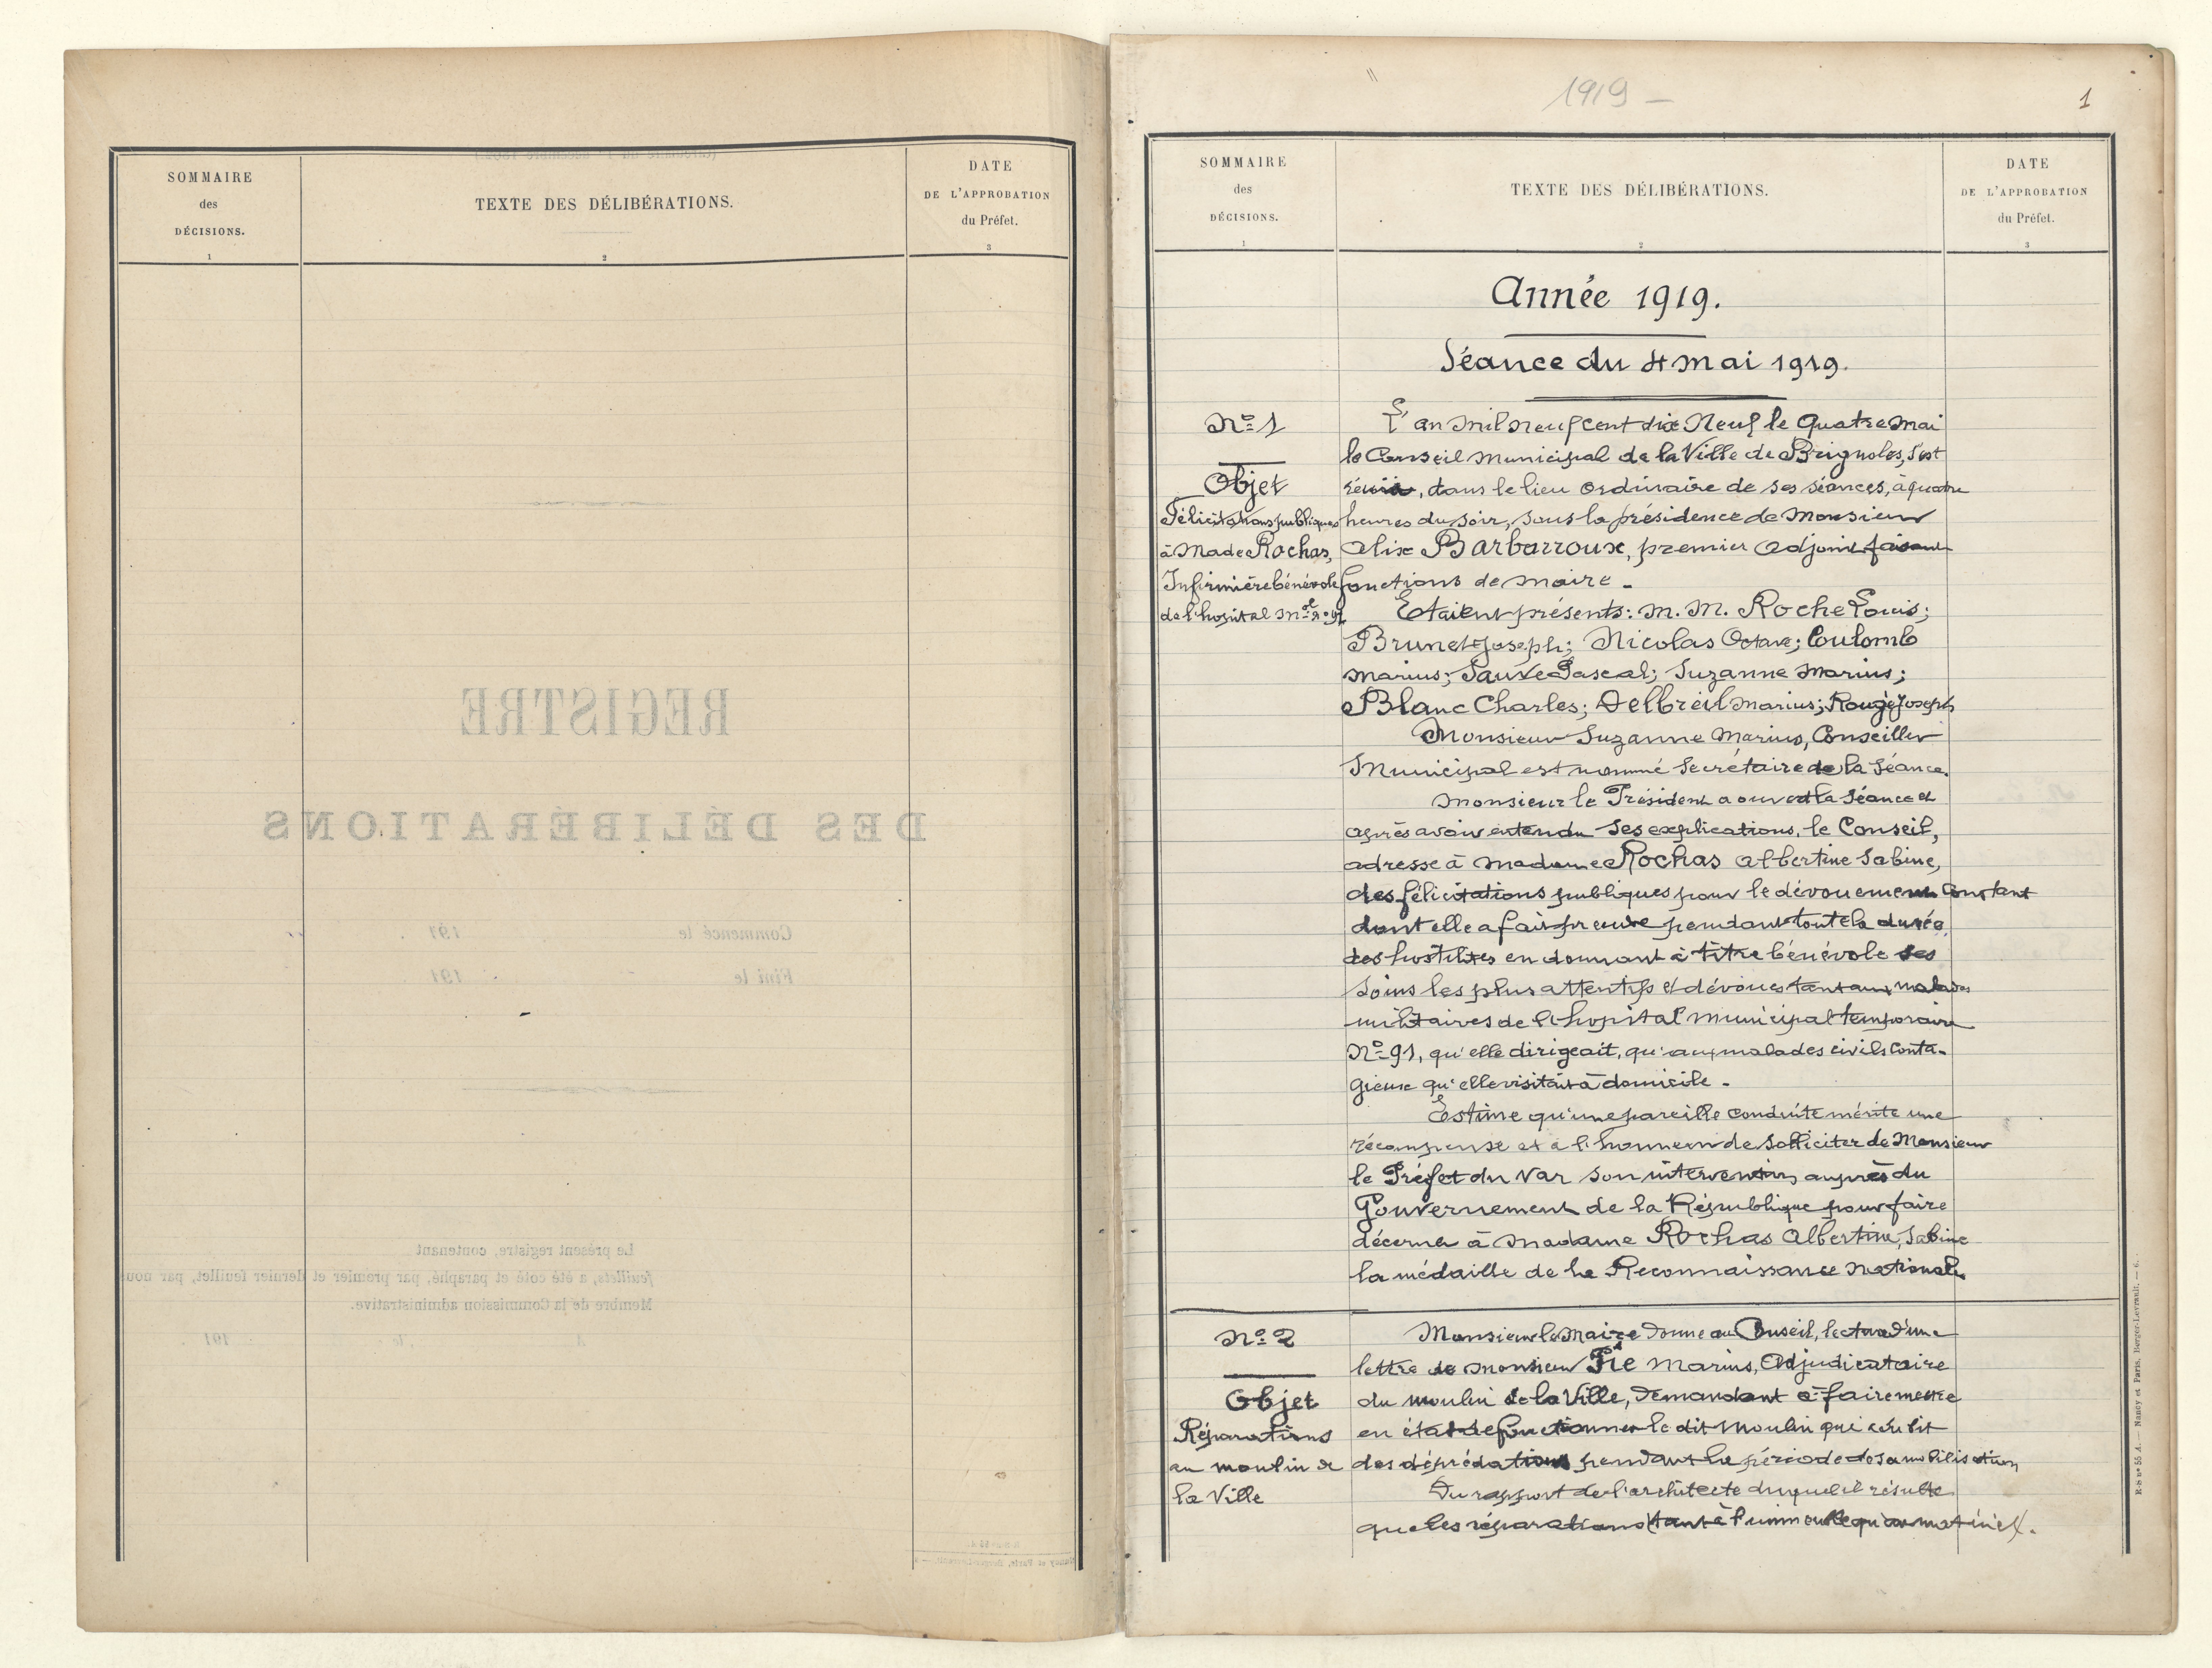 SOMMAIRE
des
DÉCISIONS.
1
TEXTE DES DÉLIBÉRATIONS.
2
DATE
DE L'APPROBATION
du Préfet.
3
REGISTRE
DES DÉLIBÉRATIONS
Commencé le 191 .
Fini le 191
Le présent registre, contenant
feuillets, a été coté et paraphé, par premier et dernier feuillet, par nous
Membre de la Commission administrative.
A , le 191 .
1919 —
1
SOMMAIRE
des
DÉCISIONS.
1
TEXTE DES DÉLIBÉRATIONS.
2
DATE
DE L'APPROBATION
du Préfet.
3
Année 1919.
Séance du 4 mai 1919.
No 1
Objet
Félicitations publiques
à Made Rochas,
Infirmière bénévole
de l'hopital Mal No 91
L'an mil neuf cent dix Neuf le Quatre Mai
le Conseil Municipal de la Ville de Brignoles, s'est
réuni, dans le lieu ordinaire de ses séances, à quatre
heures du soir, sous la présidence de Monsieur
Alix Barbarroux, premier Adjoint faisant
fonctions de Maire -
Etaient présents: M. M. Roche Louis;
Brunet Joseph; Nicolas Octave; Coulomb
Marius; Sauve Pascal; Suzanne Marius;
Blanc Charles; Delbreil Marius; Rougé Joseph
Monsieur Suzanne Marius, Conseiller
Municipal est nommé Secrétaire de la Séance.
Monsieur le Président a ouvert la Séance et
après avoir entendu ses explications, le Conseil,
adresse à Madame Rochas Albertine Sabine,
des félicitations publiques pour le dévouement constant
dont elle a fait preuve pendant toute la durée
des hostilités en donnant à titre bénévole ses
soins les plus attentifs et dévoués tant aux malades
militaires de l'hopital Municipal temporaire
No 91, qu'elle dirigeait, qu'aux malades civils conta-
gieux qu'elle visitait à domicile -
Estime qu'une pareille conduite mérite une
récompense et a l'honneur de solliciter de Monsieur
le Préfet du Var son intervention auprès du
Gouvernement de la République pour faire
décerner à Madame Rochas Albertine, Sabine
la médaille de la Reconnaissance Nationale
No 2
Objet
Réparations
au moulin de
la Ville
Monsieur le Maire donne au Conseil, lecture d'une
lettre de Monsieur Pié Marius, Adjudicataire
du moulin de la Ville, demandant à faire mettre
en état de fonctionner le dit Moulin qui a subit
des déprédations pendant la période de sa mobilisation
Du rapport de l'architecte duquel il résulte
que les réparations tant à l'immeuble qu'au matériel.
R-S no 55 A. — Nancy et Paris, Berger-Levrault. — 6.